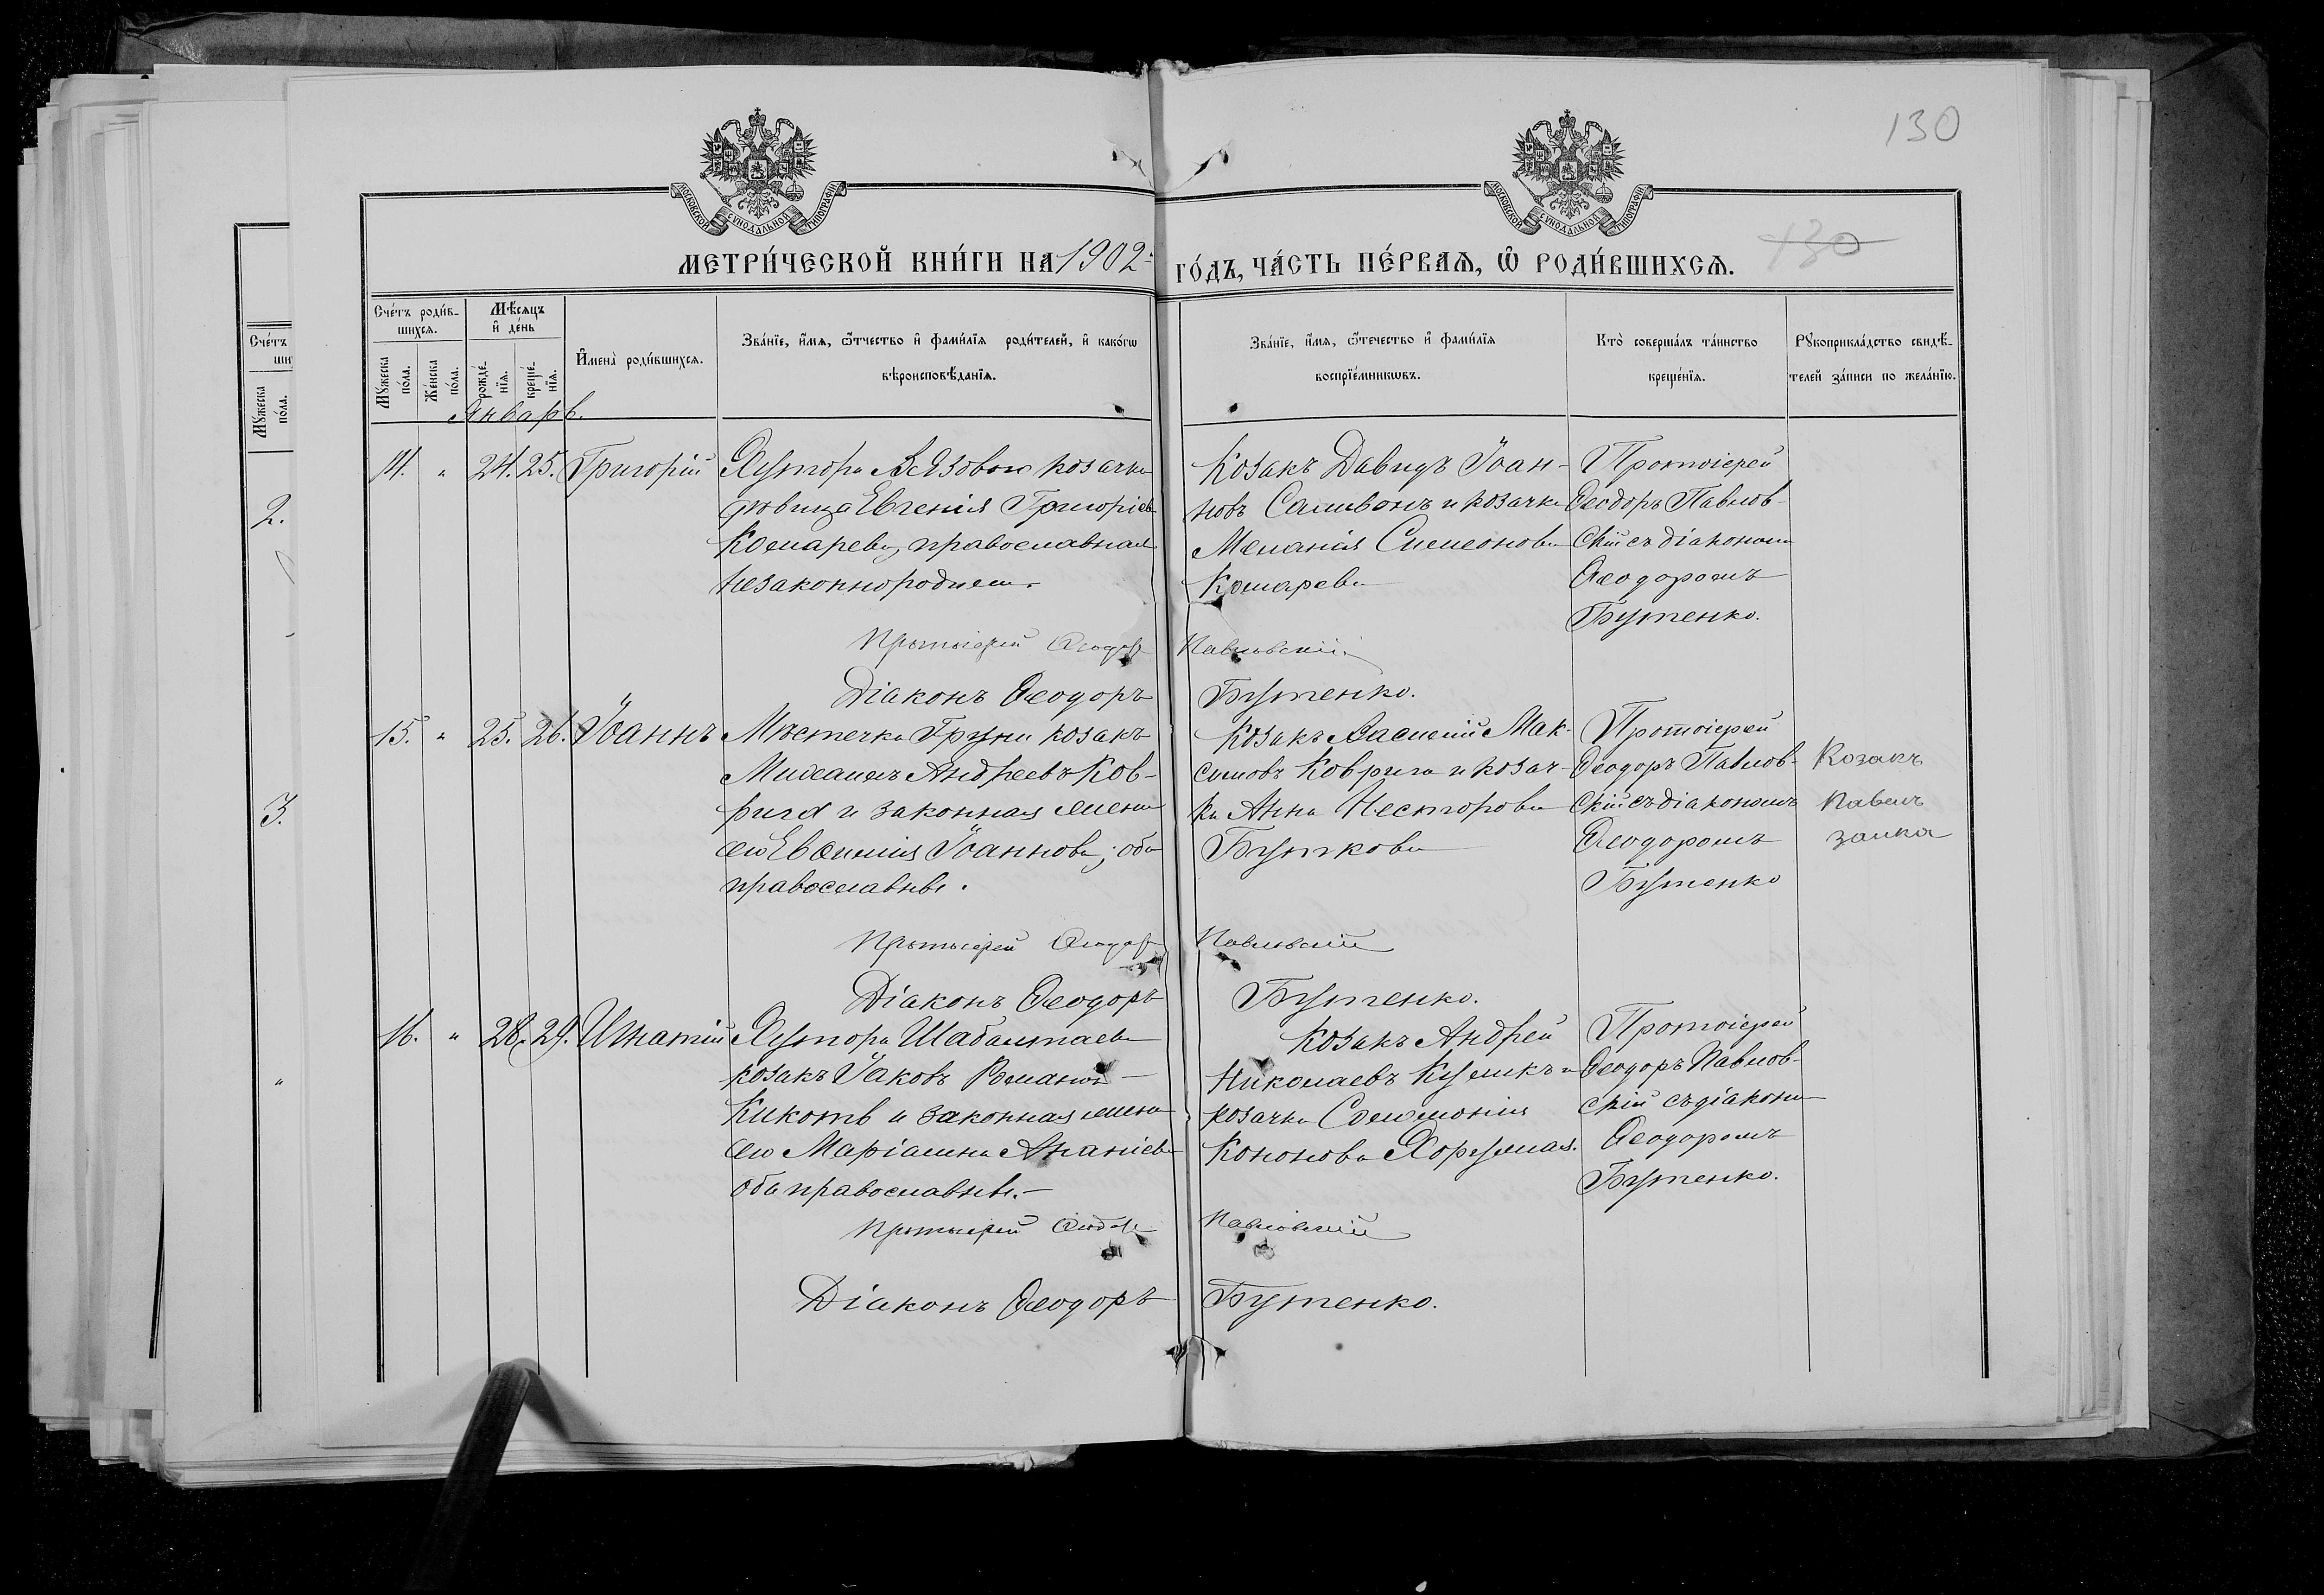 130
МОСКОВСКОЙ СУНОДАЛЬНОЙ ТИПОГРАФІИ
МОСКОВСКОЙ СУНОДАЛЬНОЙ ТИПОГРАФІИ
МЕТРИ́ЧЕСКОЙ КНИ́ГИ НА 1902: ГО́ДЪ, ЧА́СТЬ ПЕ́РВАѦ, Ѿ РОДИ́ВШИХСѦ.
130
Сче́тъ роди́в-
шихсѧ.
Мѣ́сѧцъ
и҆ де́нь
Мꙋ́жеска
по́ла.
Же́нска
по́ла.
рожде́-
нїѧ.
креще́-
нїѧ.
И҆мена̀ роди́вшихсѧ.
Зва́нїе, и҆́мѧ, ѻ҆́тчество и҆ фами́лїѧ роди́телей, и҆ како́гѡ
вѣроисповѣ́данїѧ.
Зва́нїе, и҆́мѧ, ѻ҆те́чество и҆ фами́лїѧ
воспрїе́мникѡвъ.
Кто̀ соверша́лъ та́инство
креще́нїѧ.
Рꙋкоприкла́дство свидѣ́-
телей за́писи по жела́нїю.
Сче́тъ
Мꙋ́жеска
по́ла.
2.
3.
Январь.
14. „ 24. 25. Григорій
Хутора козачка
дѣвица Евгенія Григоріев
Комарева, православная
незаконнорожден.
Козакъ Давидъ Іоан-
новъ Саливонъ и козачка
Меланія Симеонова
Комарева
Протоіерей
Ѳеодоръ Павлов-
скій съ діакономъ
Ѳеодоромъ
Бутенко.
Протоіерей Ѳеодоръ Павловскій
Діаконъ Ѳеодоръ Бутенко.
15. „ 25. 26. Іоаннъ
Мѣстечка Груни козакъ
Михаилъ Андреевъ Ков-
рига и законная жена
его Евѳимія Іоаннова; оба
православные.
Козакъ Василій Мак-
симовъ Коврига и козач-
ка Анна Несторова
Буткова
Протоіерей
Ѳеодоръ Павлов-
скій съ діакономъ
Ѳеодоромъ
Бутенко
Козакъ
Павелъ
заика
Протоіерей Ѳеодоръ Павловскій
Діаконъ Ѳеодоръ Бутенко.
16. „ 28. 29. Игнатій
Хутора Шабалтаева
козакъ Іаковъ Романов
Кикоть и законная жена
его Маріамна Ананіева
оба православные.
Козакъ Андрей
Николаевъ Куликъ и
козачка Соломонія
Кононова Хоружая.
Протоіерей
Ѳеодоръ Павлов-
скій съ діакономъ
Ѳеодоромъ
Бутенко.
Протоіерей Ѳеодоръ Павловскій
Діаконъ Ѳеодоръ Бутенко.